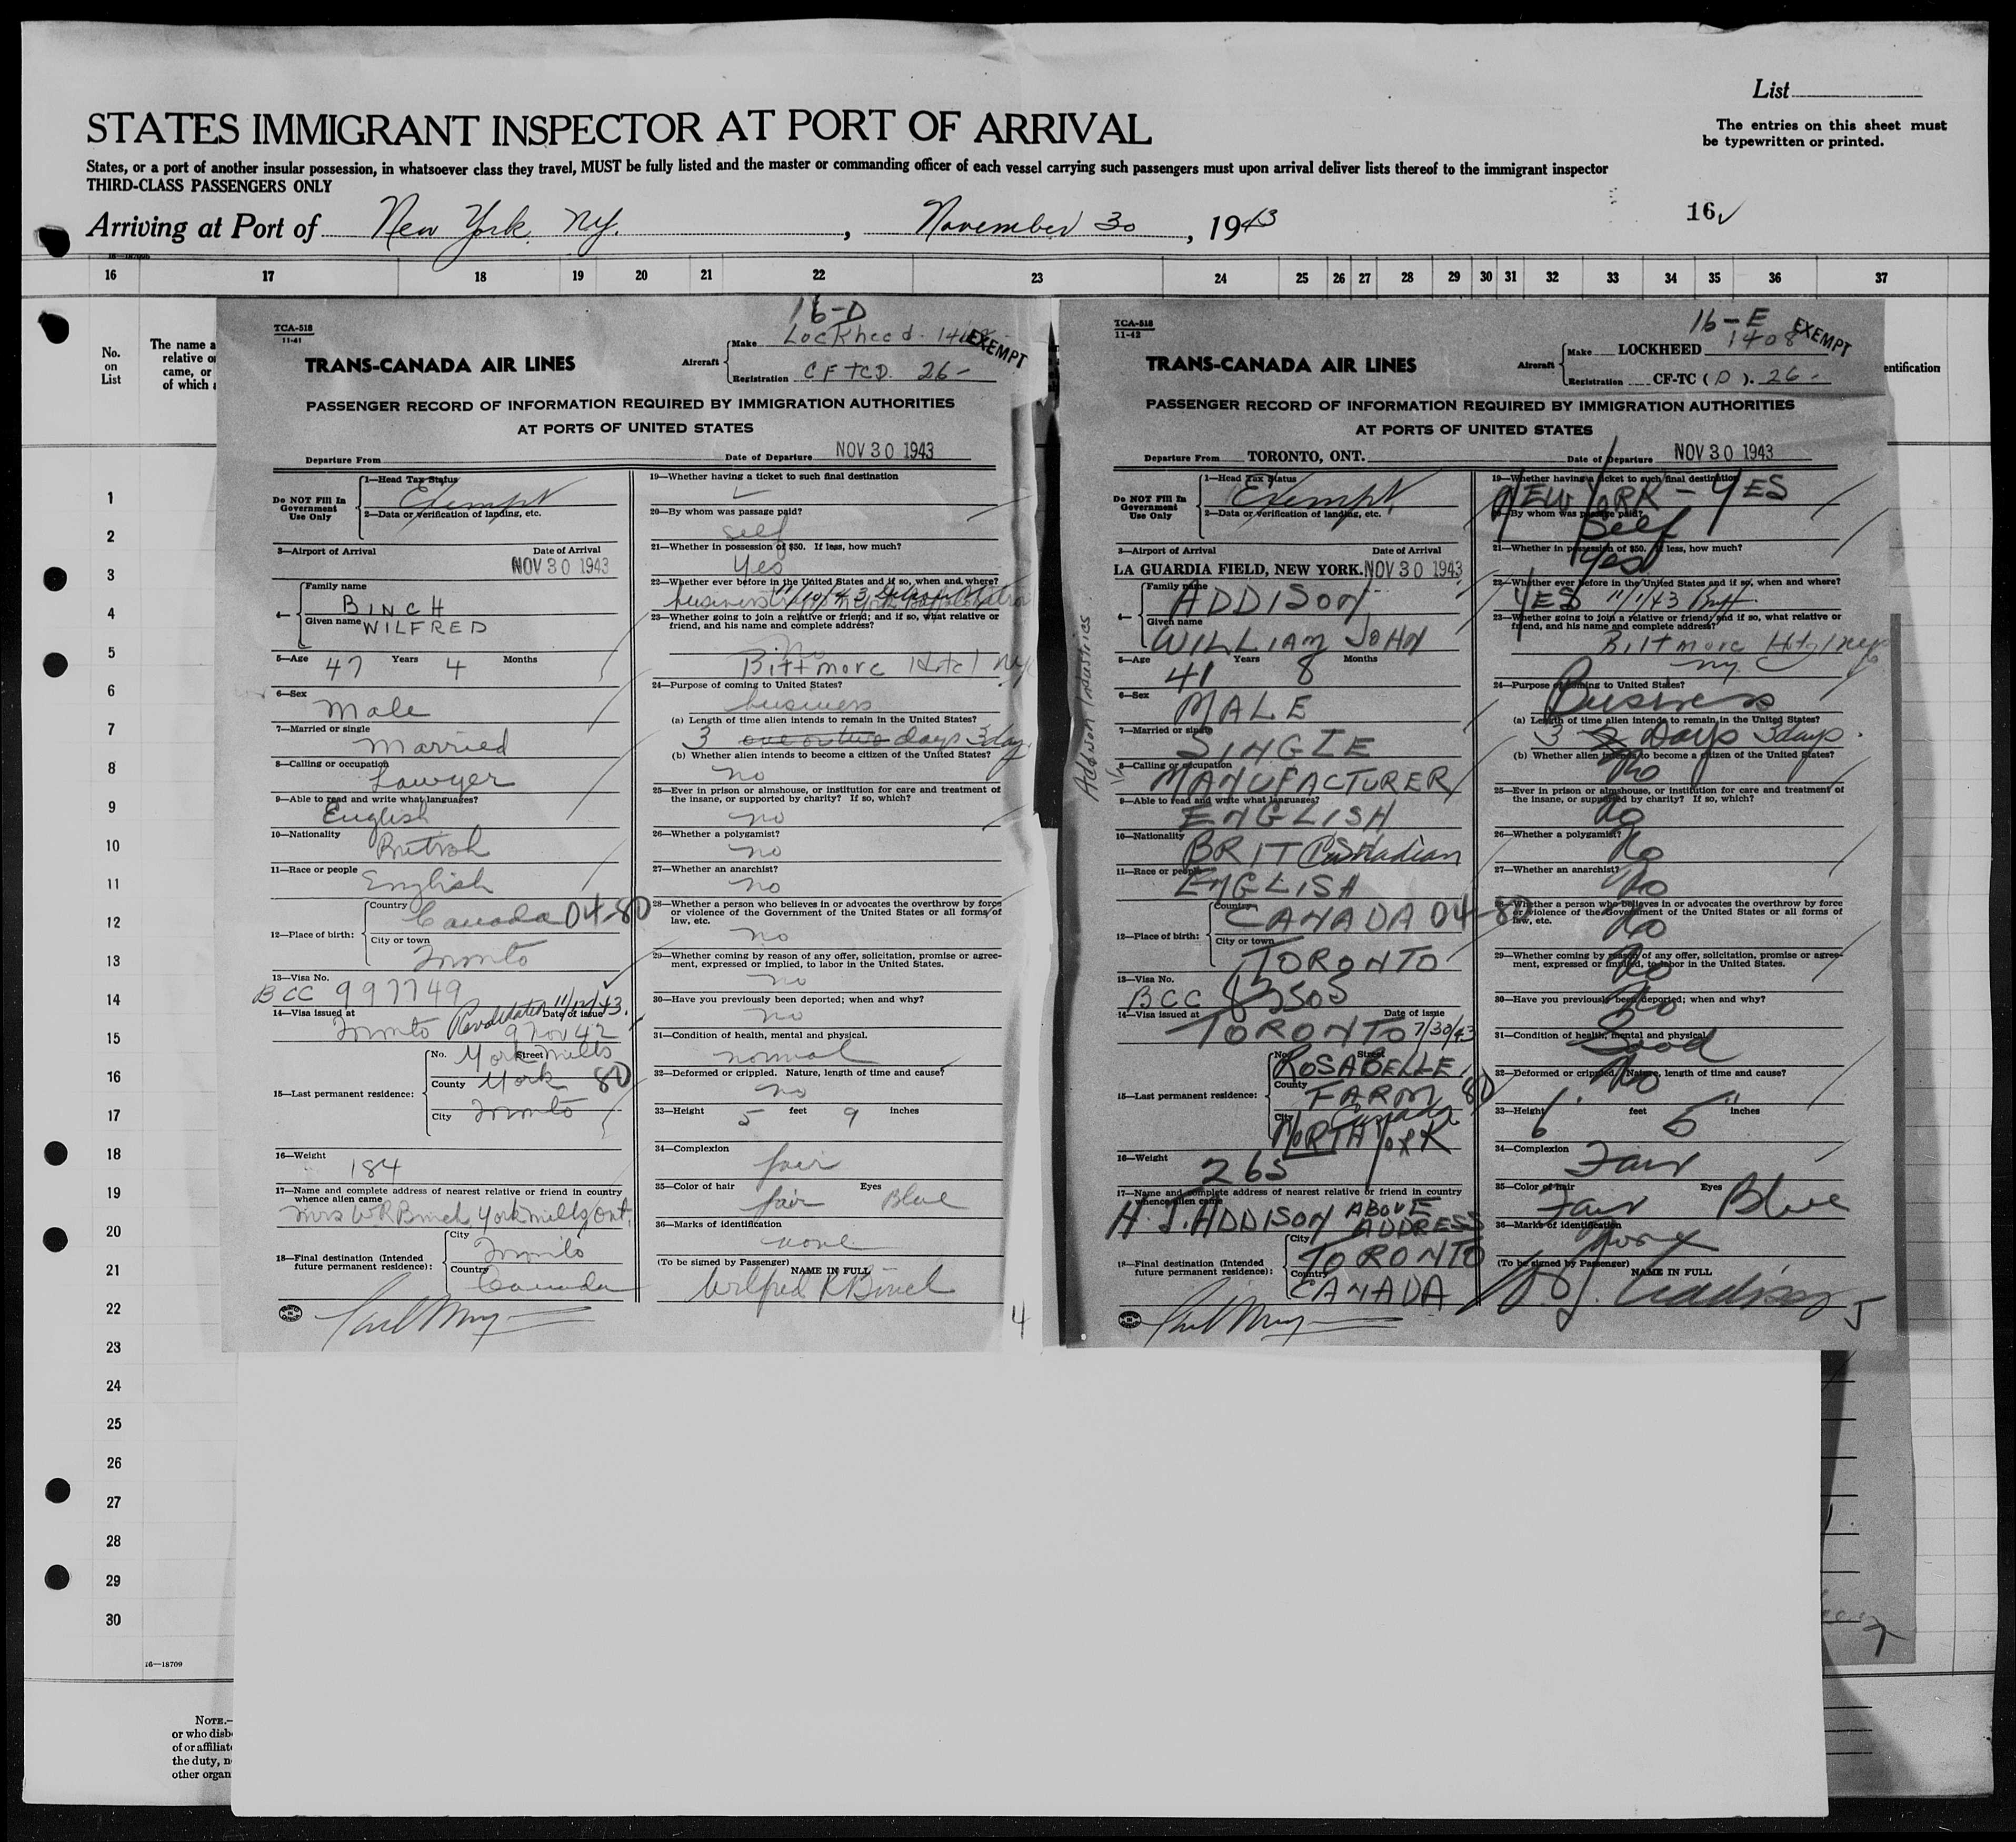 List
STATES IMMIGRANT INSPECTOR AT PORT OF ARRIVAL
The entries on this sheet must
be typewritten or printed.
States, or a port of another insular possession, in whatsoever class they travel, MUST be fully listed and the master or commanding officer of each vessel carrying such passengers must upon arrival deliver lists thereof to the immigrant inspector
THIRD-CLASS PASSENGERS ONLY
Arriving at Port of New York, NY., November 30, 1943
16
16 17 18 19 20 21 22 23 24 25 26 27 28 29 30 31 32 33 34 35 36 37
No.
on
List
The name a
relative o
came, or
of which
entification
1
2
3
4
5
6
7
8
9
10
11
12
13
14
15
16
17
18
19
20
21
22
23
24
25
26
27
28
29
30
16—18709
NOTE.—
or who disb
of or affiliat
the duty, n
other organ
16-D
TCA-518
11-41
TRANS-CANADA AIR LINES
Aircraft
Make Lockheed
EXEMPT
Registration CFTCD. 26-
PASSENGER RECORD OF INFORMATION REQUIRED BY IMMIGRATION AUTHORITIES
AT PORTS OF UNITED STATES
Departure From
Date of Departure NOV 30 1943
Do NOT Fill In
Government
Use Only
1—Head Tax Status
Exempt
2—Data or verification of landing, etc.
3—Airport of Arrival
Date of Arrival
NOV 30 1943
4—
Family name
BINCH
Given name WILFRED
5—Age 47 Years 4 Months
6—Sex
Male
7—Married or single
Married
8—Calling or occupation
Lawyer
9—Able to read and write what languages?
English
10—Nationality
British
11—Race or people
English
12—Place of birth:
Country
Canada 04-80
City or town
Toronto
13—Visa No.
BCC 997749
14—Visa issued at
Date of issue
Toronto Revalidated 11/12/43.
9 Nov 42
15—Last permanent residence:
No. Street
York Mills
County York 80
City Toronto
16—Weight
184
17—Name and complete address of nearest relative or friend in country
whence alien came
Mrs WR Binch York Mills Ont.
18—Final destination (Intended
future permanent residence):
City
Toronto
Country
Canada
19—Whether having a ticket to such final destination
20—By whom was passage paid?
self
21—Whether in possession of $50. If less, how much?
Yes
22—Whether ever before in the United States and if so, when and where?
business 11/10/43
23—Whether going to join a relative or friend; and if so, what relative or
friend, and his name and complete address?
no
Biltmore Hotel NY
24—Purpose of coming to United States?
business
(a) Length of time alien intends to remain in the United States?
3 one or two days 3 days
(b) Whether alien intends to become a citizen of the United States?
no
25—Ever in prison or almshouse, or institution for care and treatment of
the insane, or supported by charity? If so, which?
no
26—Whether a polygamist?
no
27—Whether an anarchist?
no
28—Whether a person who believes in or advocates the overthrow by force
or violence of the Government of the United States or all forms of
law, etc.
no
29—Whether coming by reason of any offer, solicitation, promise or agree-
ment, expressed or implied, to labor in the United States.
no
30—Have you previously been deported; when and why?
no
31—Condition of health, mental and physical.
normal
32—Deformed or crippled. Nature, length of time and cause?
no
33—Height 5 feet 9 inches
34—Complexion
fair
35—Color of hair Eyes
fair Blue
36—Marks of identification
none
(To be signed by Passenger)
NAME IN FULL
Wilfred R Binch
4
16-E
TCA-518
11-42
TRANS-CANADA AIR LINES
Aircraft
Make LOCKHEED 1408
EXEMPT
Registration CF-TC (D). 26-
PASSENGER RECORD OF INFORMATION REQUIRED BY IMMIGRATION AUTHORITIES
AT PORTS OF UNITED STATES
Departure From TORONTO, ONT.
Date of Departure NOV 30 1943
Do NOT Fill In
Government
Use Only
1—Head Tax Status
Exempt
2—Data or verification of landing, etc.
3—Airport of Arrival
Date of Arrival
LA GUARDIA FIELD, NEW YORK. NOV 30 1943
4—
Family name
ADDISON
Given name
WILLIAM JOHN
5—Age 41 Years 8 Months
6—Sex
MALE
7—Married or single
SINGLE
8—Calling or occupation
MANUFACTURER
Addison Industries
9—Able to read and write what languages?
ENGLISH
10—Nationality
BRIT Canadian
11—Race or people
ENGLISH
12—Place of birth:
Country
CANADA 04-80
City or town
TORONTO
13—Visa No.
BCC
14—Visa issued at
Date of issue
TORONTO 7/30/43
15—Last permanent residence:
No. Street
ROSABELLE
County
FARM 80
Canada
City
NORTH YORK
16—Weight
265
17—Name and complete address of nearest relative or friend in country
whence alien came
H. J. ADDISON ABOVE
ADDRESS
18—Final destination (Intended
future permanent residence):
City
TORONTO
Country
CANADA
19—Whether having a ticket to such final destination
NEW YORK - YES
20—By whom was passage paid?
Self
21—Whether in possession of $50. If less, how much?
Yes
22—Whether ever before in the United States and if so, when and where?
YES 11/1/43 Buff
23—Whether going to join a relative or friend; and if so, what relative or
friend, and his name and complete address?
Biltmore Hotel
ny.
24—Purpose of coming to United States?
Business
(a) Length of time alien intends to remain in the United States?
3 Days 3 days.
(b) Whether alien intends to become a citizen of the United States?
No
25—Ever in prison or almshouse, or institution for care and treatment of
the insane, or supported by charity? If so, which?
No
26—Whether a polygamist?
No
27—Whether an anarchist?
No
28—Whether a person who believes in or advocates the overthrow by force
or violence of the Government of the United States or all forms of
law, etc.
No
29—Whether coming by reason of any offer, solicitation, promise or agree-
ment, expressed or implied, to labor in the United States.
No
30—Have you previously been deported; when and why?
No
31—Condition of health, mental and physical.
Good
32—Deformed or crippled. Nature, length of time and cause?
No
33—Height 6' feet 5" inches
34—Complexion
Fair
35—Color of hair Eyes
Fair Blue
36—Marks of identification
None
(To be signed by Passenger)
NAME IN FULL
W. J. Addison
5